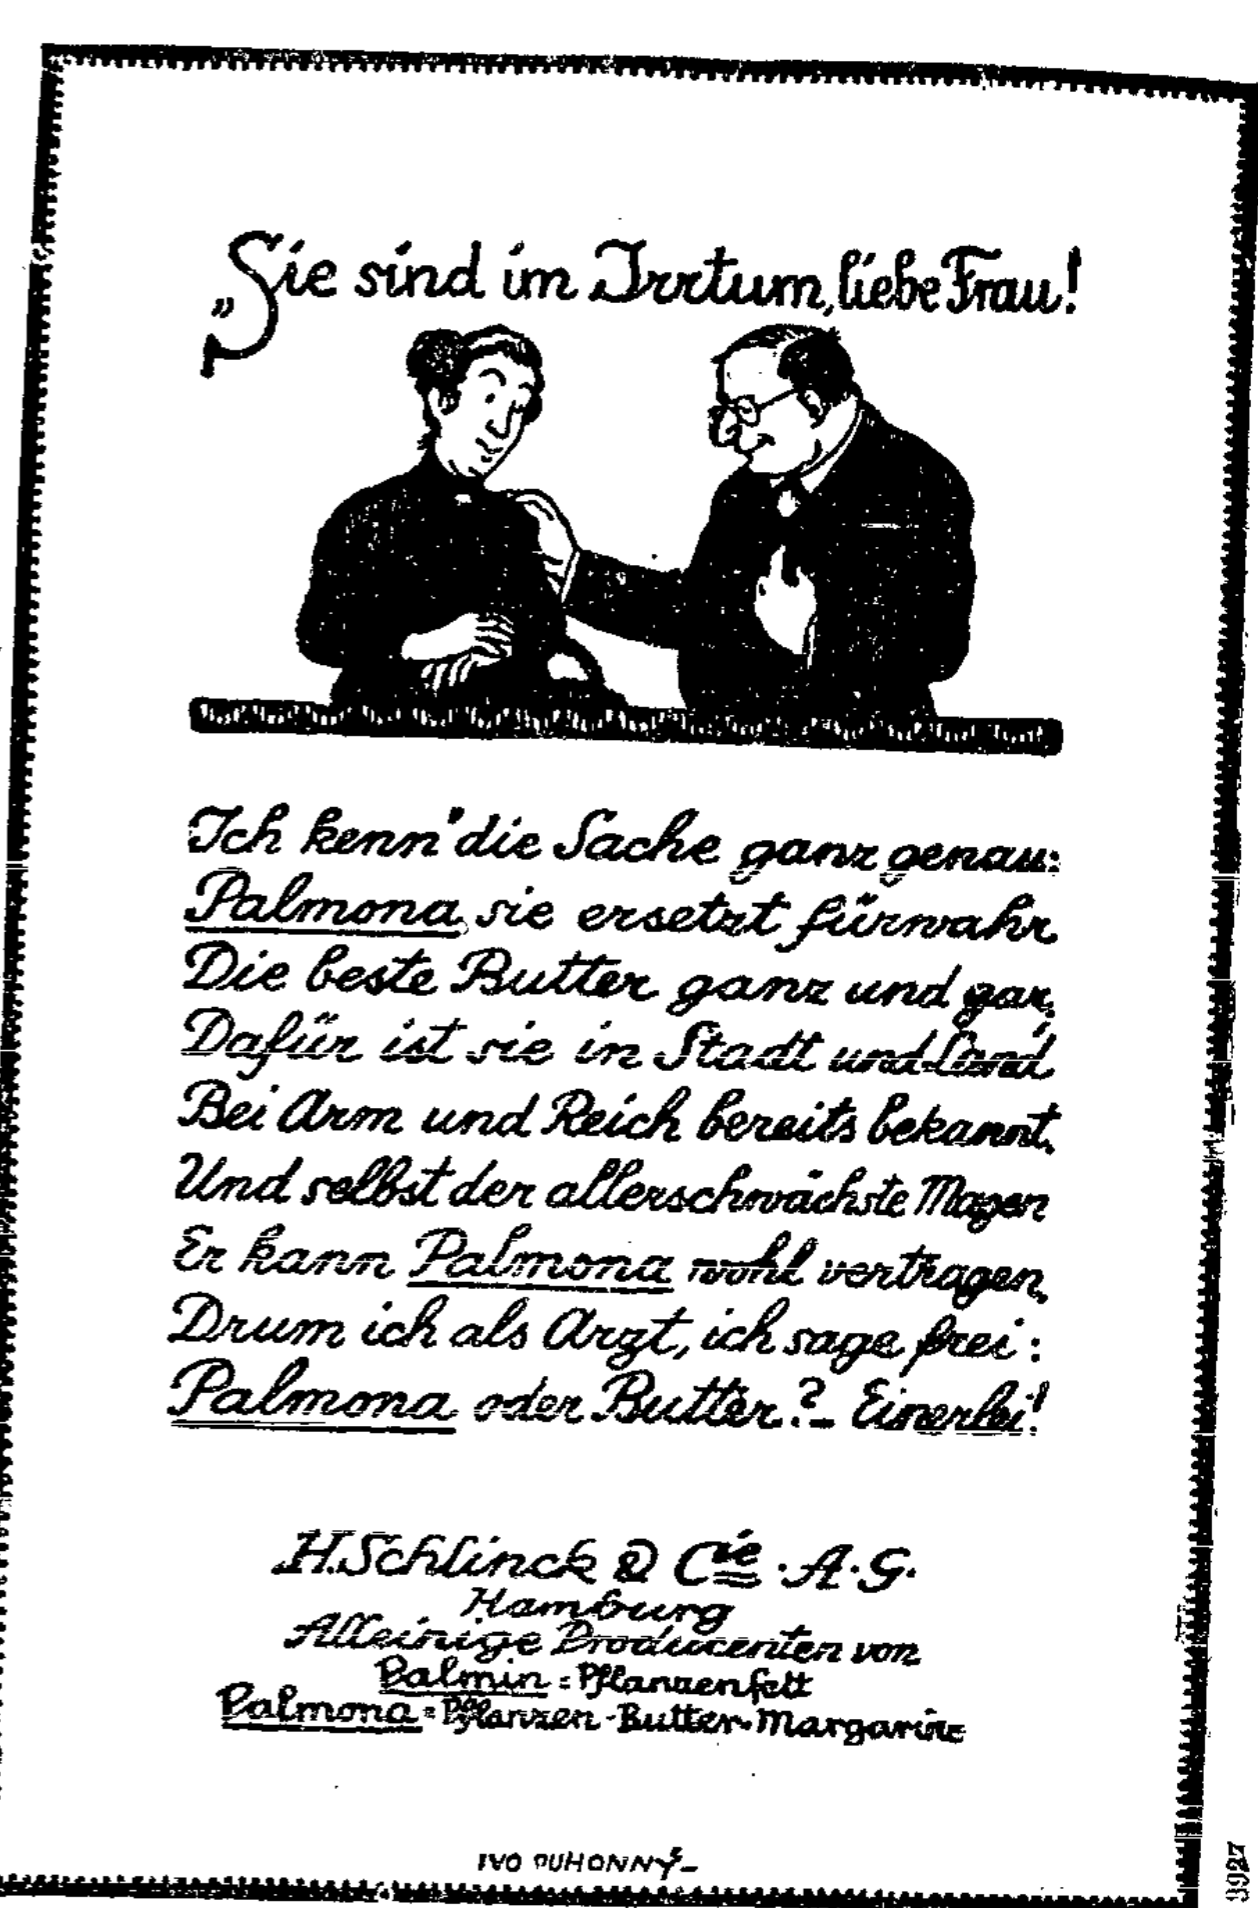 „Sie sind im Irrtum, liebe Frau!
Ich kenn" die Sache ganz genau:
Palmona, sie ersetzt fürwahr
Die beste Butter ganz und gar,
Dafür ist sie in Stadt und Land
Bei Arm und Reich bereits bekannt.
Und selbst der allerschwächste Magen
Er kann Palmona wohl vertragen,
Drum ich als Arzt, ich sage frei:
Palmona oder Butter? – Einerlei!
H. Schlinck & Cie · A · G ·
Hamburg
Alleinige Producenten von
Palmin = Pflanzenfett
Palmona = Pflanzen-Butter-Margarine
IVO PUHONNÝ –
3927